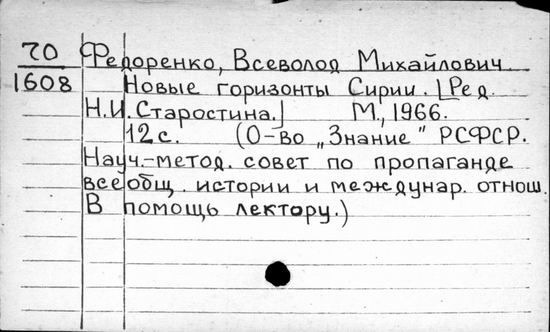 70 Федоренко, Всеволод Михайлович
1608 Новые горизонты Сирии. [Ред.
Н.И. Старостина.] М., 1966.
12 с. (О-во „Знание" РСФСР.
Науч.-метод. совет по пропаганде
всеобщ. истории и междунар. отнош.
В помощь лектору.)